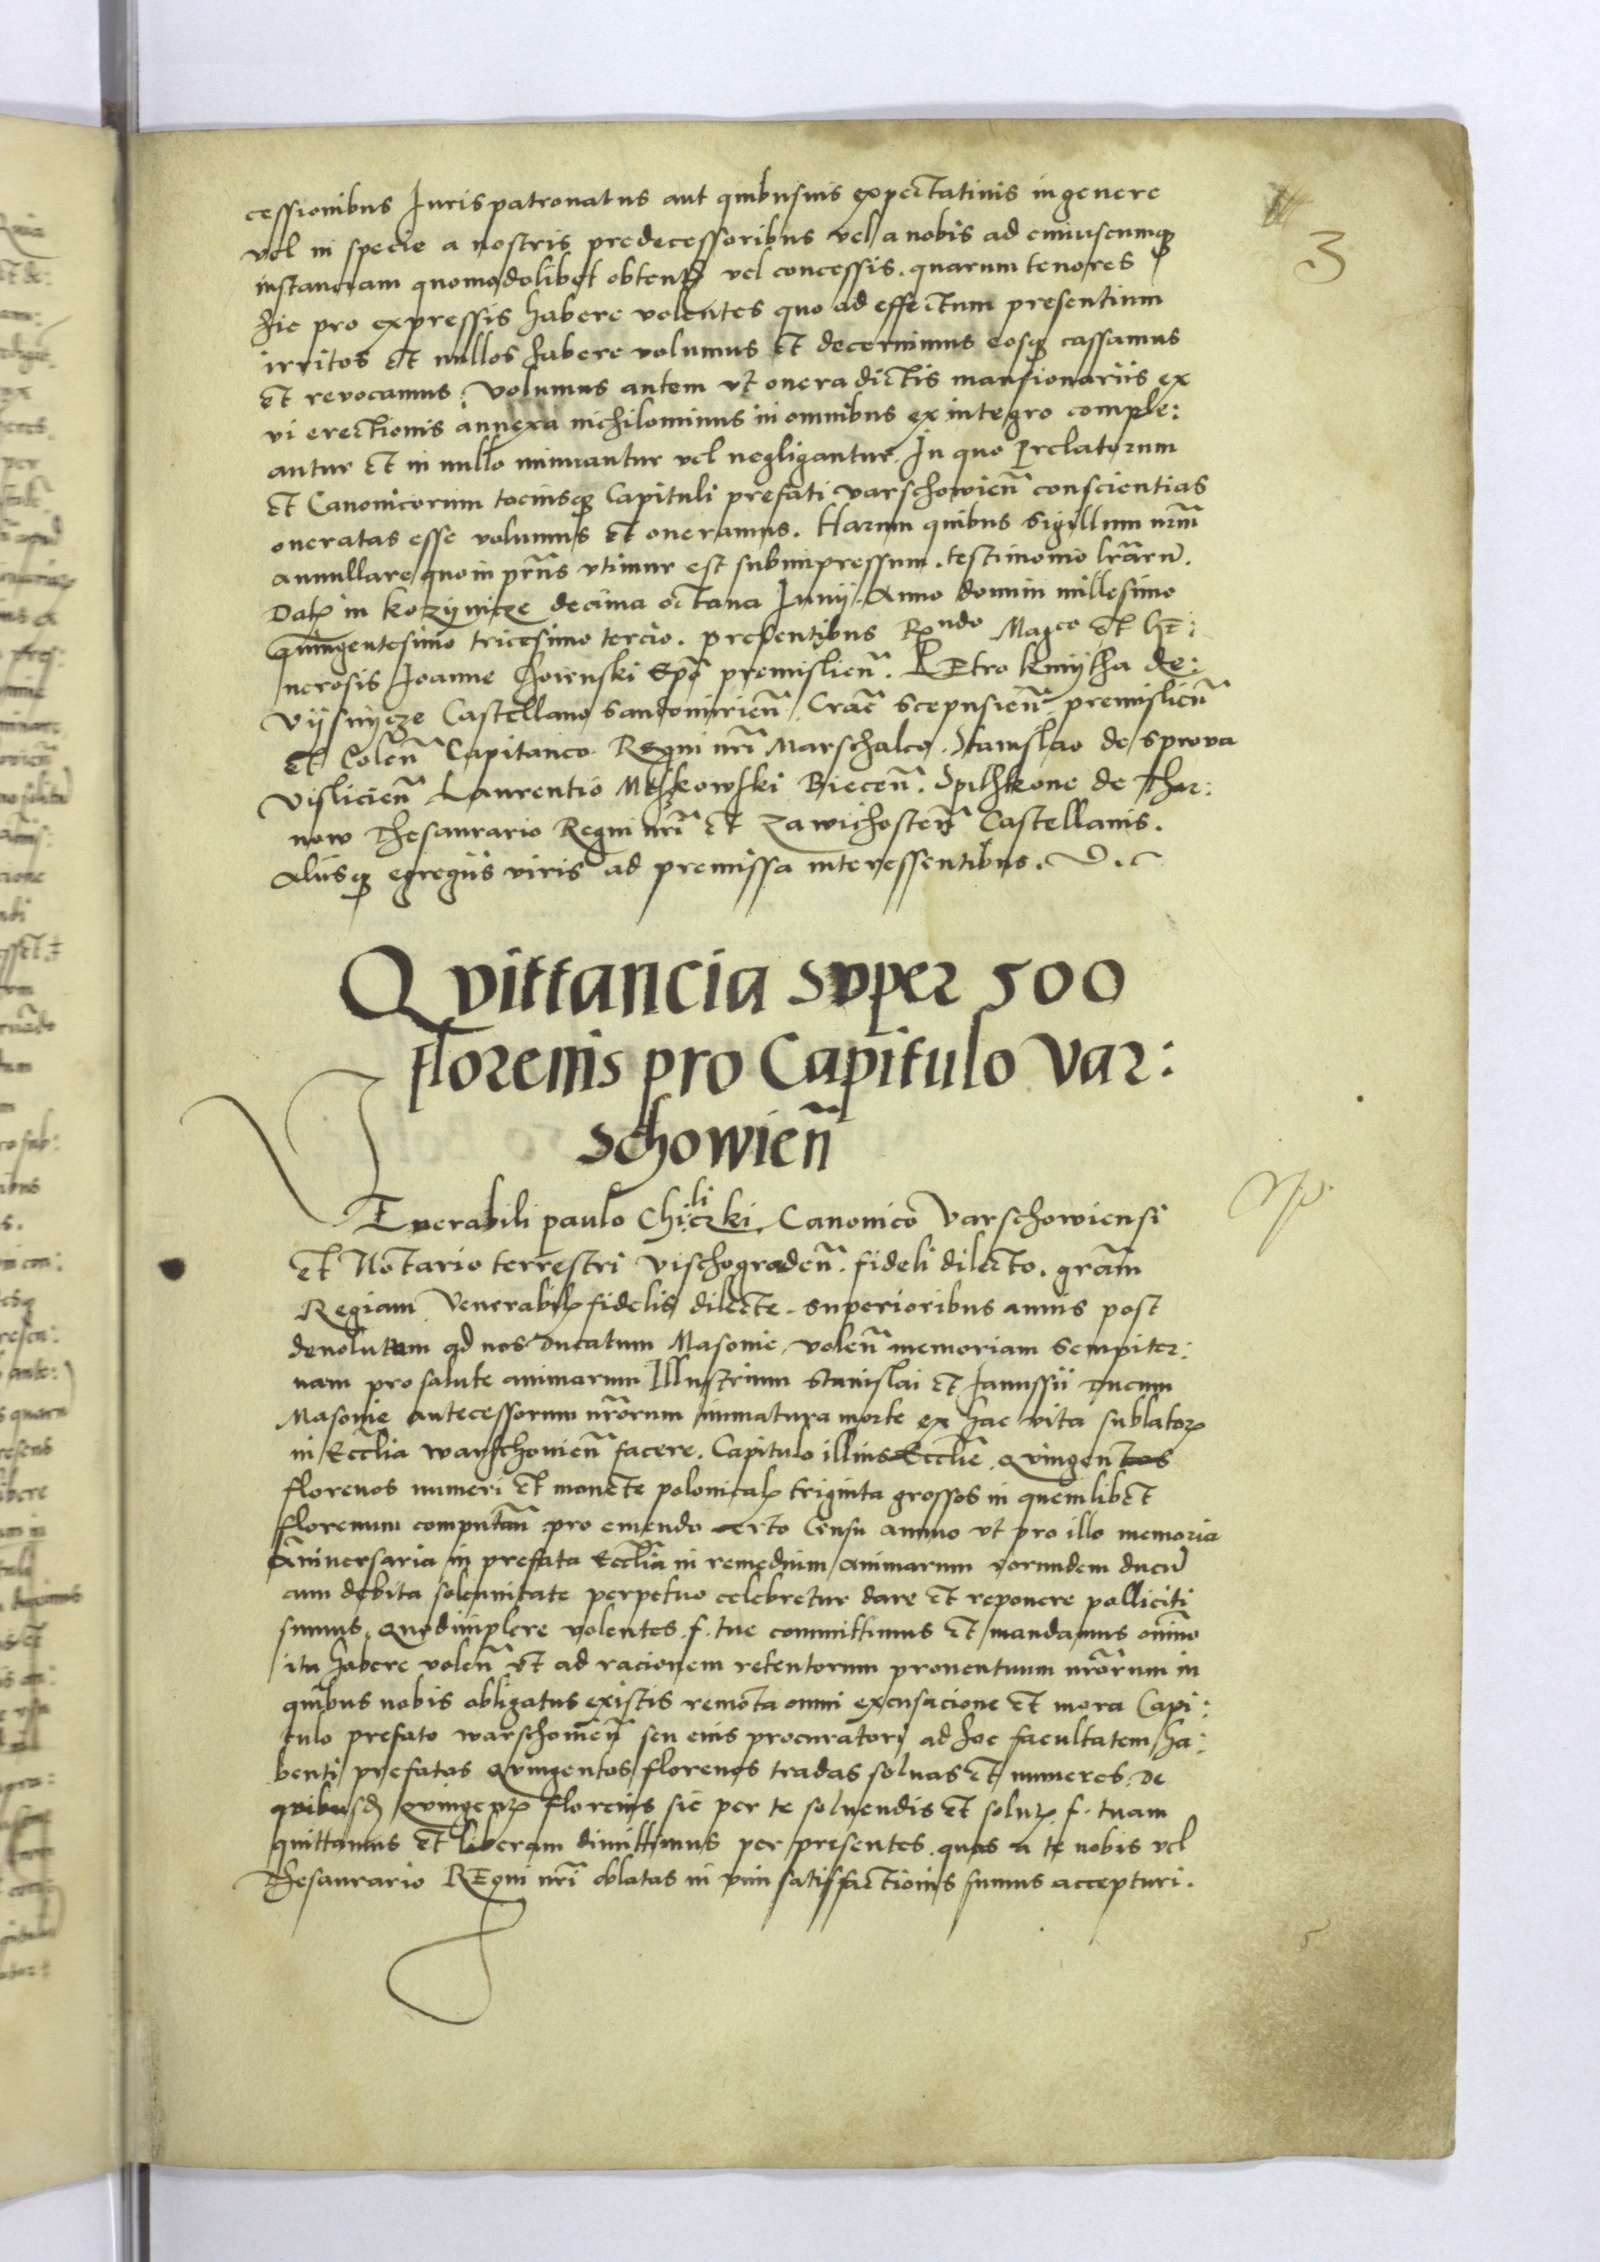 3
cessionibus Jurispatronatus aut quibusuis expectatiuis in genere
vel in specie a nostris predecessoribus vel a nobis ad cuiuscumq3
instanciam quomodolibet obtentis vel concessis . quarum tenores
hic pro expressis habere volentes quo ad effectum presentium
irritos et nullos habere volumus et decernimus eosq3 cassamus
et reuocamus : Volumus autem vt onera dictis mansionariis ex
vi erectionis annexa nichilominus in omnibus ex integro comple:
antur et in nullo minuantur vel negligantur . In quo Prelatorum
et Canonicorum tociusq3 Capituli prefati varschowień conscientias
oneratas esse volumus et oneramus . Harum quibus sigillum nr̃m
annullare quo in pñs vtimur est subimpressum . testimonio lr̃arũ .
Dat in kozynicze decima octaua Junij . Anno domini millesimo
quingentesimo tricesimo tercio . presentibus Rndo Magco et Ge:
nerosis Joanne Choienski Ep̃o premislień . PEtro kmytha de:
vijsnycze Castellano Sandomirień , Crac̃ Scepusień premislień
et Coleń Capitaneo Regni nr̃i Marschalco . Stanislao de sprova
vislicień Laurentio Myskowski Bieceń . Spithkone de Thar:
now Thesaurario Regni nr̃i et Zawichosteń Castellanis .
Aliisq3 egregiis viris ad premissa interessentibus .
Qvittancia svper 500
florenis pro Capitulo Var:
schowień
VEnerabili paulo Chiliczki Canonico Varschowiensi
et Notario terrestri vischogradeń . fideli dilecto . gr̃am
Regiam Venerabilis fidelis dilecte . superioribus annis post
deuolutum ad nos ducatum Masouie , voleń memoriam sempiter:
nam pro salute animarum Illustrium Stanislai et Janussii ducum
Masouie antecessorum nr̃orum immatura morte ex hac vita sublatorum
in Eccl̃ia warschouień facere . Capitulo illius Eccl̃ie quingentos
florenos numeri et monete polonicalis triginta grossos in quemlibet
florenum computań pro emendo certo Censu annuo vt pro illo memoria
Anniuersaria in prefata Eccl̃ia in remedium animarum eorundem ducũ
cum debita solennitate perpetuo celebretur dare et reponere polliciti
sumus , quod implere volentes . f . tue committimus et mandamus om̃ino
ita habere voleń vt ad racionem retentorum prouentuum nr̃orum in
quibus nobis obligatus existis remota omni excusacione et mora Capi:
tulo prefato warschouień seu eius procuratori ad hoc facultatem ha:
benti prefatos quingentos florenos tradas soluas et numeres . de
quibus quingentis florenis sic per te soluendis et solutis f . tuam
quittamus et liberam dimittimus per presentes . quas a te nobis vel
Thesaurario REgni nr̃i oblatas in vim satisfactionis sumus accepturi .